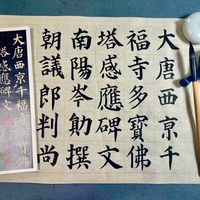 大唐西京千
福寺多寶佛
塔感應碑文
南陽岑勛撰
朝議郎判尚
大唐西京千福
塔感應碑文